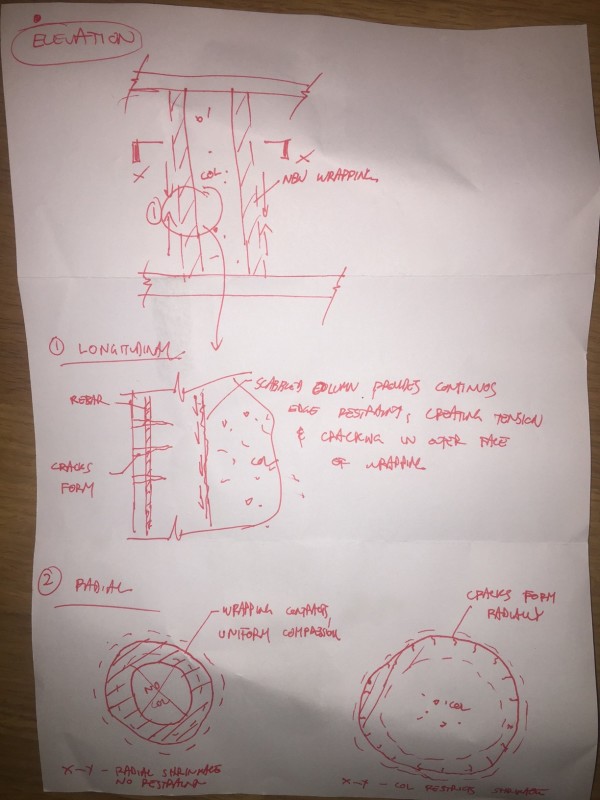 ELEVATION
X
X
COL.
NEW WRAPPING
1
1 LONGITUDINAL
REBAR
CRACKS
FORM
COL
SCABBLED COLUMN PROVIDES CONTINUOS
EDGE RESTRAINT, CREATING TENSION
& CRACKING IN OUTER FACE
OF WRAPPING
2 RADIAL
WRAPPING CONTRACTS,
UNIFORM COMPRESSION
NO
COL
X-Y - RADIAL SHRINKAGE
NO RESTRAINT
CRACKS FORM
RADIALLY
COL
X-Y - COL RESTRICTS SHRINKAGE